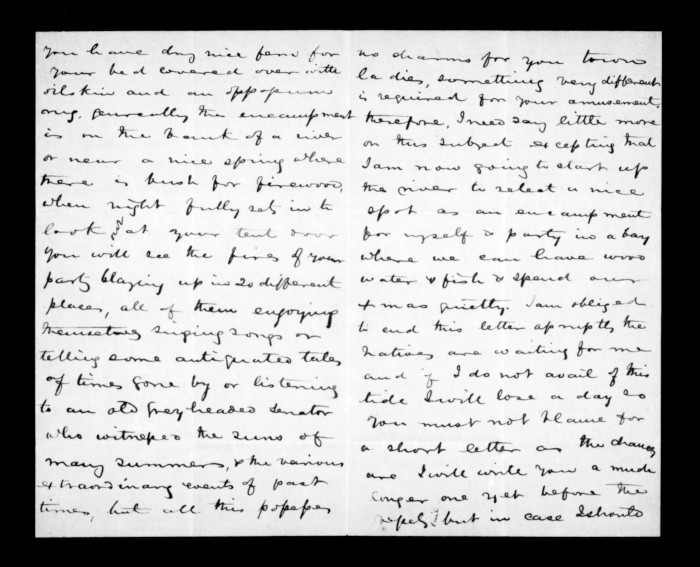 you have dry nice fern for
your bed covered over with
oilskin and an oppopum
rug. generally the encampment
is on the bank of a river
or near a nice spring where
there is bush for firewood,
when night fully sets in to
look out at your tent door
you will see the fires of your
party blazing up in 20 different
places, all of them enjoying
themselves singing songs or
telling some antiquated tales
of times gone by or listening
to an old greyheaded senator
who witnessed the suns of
many summers, & the various
extraordinary events of past
times, but all this possesses
no charms for you town
ladies, something very different
is required for your amusement,
therefore, I need say little more
on this subject excepting that
I am now going to start up
the river to select a nice
spot as an encampment
for myself & party in a bay
where we can have wood
water & fish & spend our
Xmas quietly. I am obliged
to end this letter abruptly the
Natives are waiting for me
and if I do not avail of this
tide I will lose a day so
you must not blame for
a short letter as the chances
are I will write you a much
longer one yet before the
vessel but in case I should